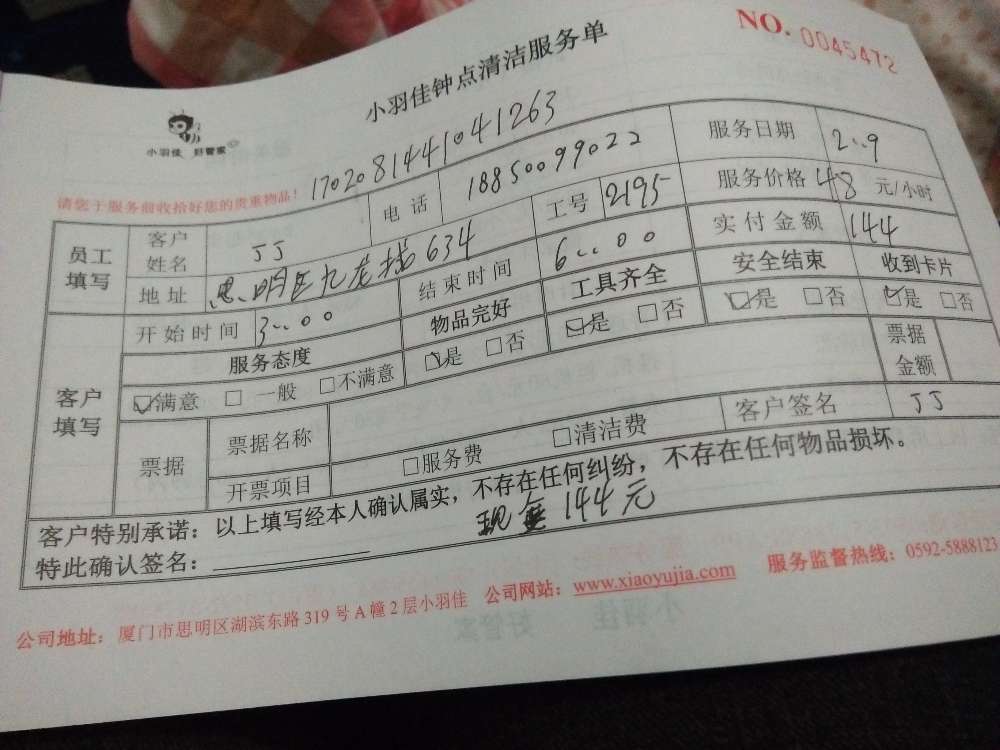 小羽佳钟点清洁服务单
NO. 0045472
小羽佳 好管家
请您于服务前收拾好您的贵重物品!
17020814410412​63
员工填写
客户姓名 JJ 电话 18850099022 服务日期 2..9
地址 思明区九龙城634 工号 2195 服务价格 48 元/小时
开始时间 3..00 结束时间 6..00 实付金额 144
客户填写
服务态度 物品完好 工具齐全 安全结束 收到卡片
☑满意 □ 一般 □不满意 ☑是 □否 ☑是 □否 ☑是 □否 ☑是 □否
票据 票据名称 票据金额
开票项目 □服务费 □清洁费 客户签名 JJ
客户特别承诺:以上填写经本人确认属实,不存在任何纠纷,不存在任何物品损坏。
特此确认签名: 现金144元
公司地址:厦门市思明区湖滨东路319号A幢2层小羽佳 公司网站:www.xiaoyujia.com 服务监督热线:0592-5888123